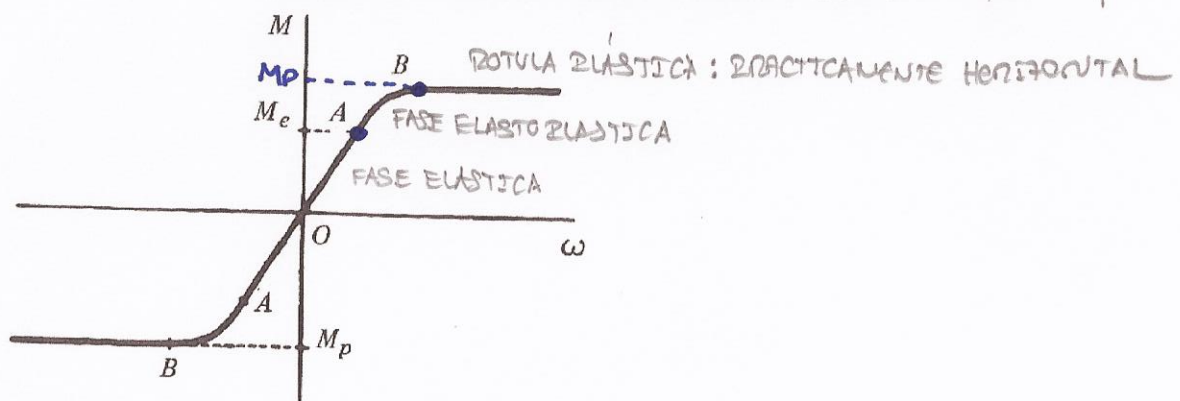 M
Mp
B
RÓTULA PLÁSTICA : PRACTICAMENTE HORIZONTAL
Me
A
FASE ELASTOPLASTICA
FASE ELASTICA
O
ω
A
Mp
B